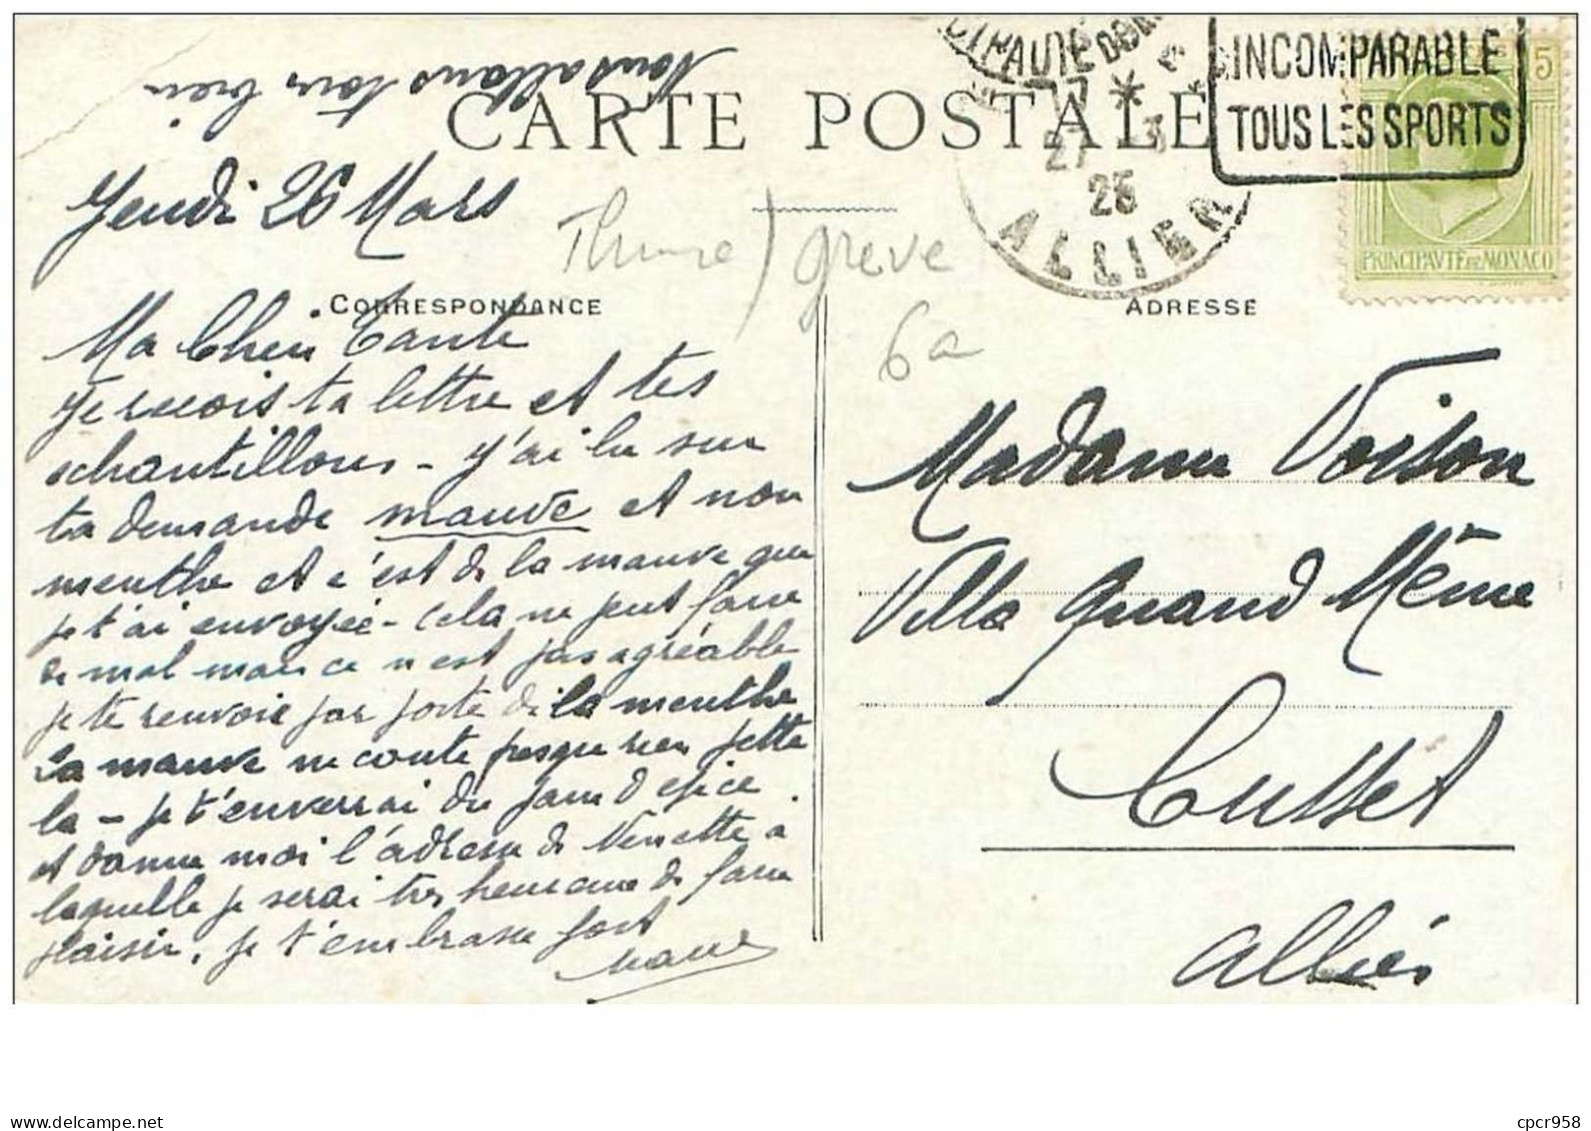 Nous allons tous bien
CARTE POSTALE
INCOMPARABLE
TOUS LES SPORTS
5
27
25
ALLIER
PRINCIPAVTE DE MONACO
Jeudi 26 Mars
grève
6a
CORRESPONDANCE
ADRESSE
Ma Chère Tante
Je reçois ta lettre et tes
échantillons - j'ai lu sur
ta demande mauve et non
menthe et c'est de la mauve que
je t'ai envoyée - cela ne peut faire
de mal mais ce n'est pas agréable
je te renvoie par poste de la menthe
La mauve ne coute presque rien jette
la - je t'enverrai du pain d epice
et donne moi l'adresse de Venette à
laquelle je serai très heureuse de faire
plaisir. je t'embrasse fort
Madame Voison
Villa Quand Même
Cusset
Allier
cpcr958